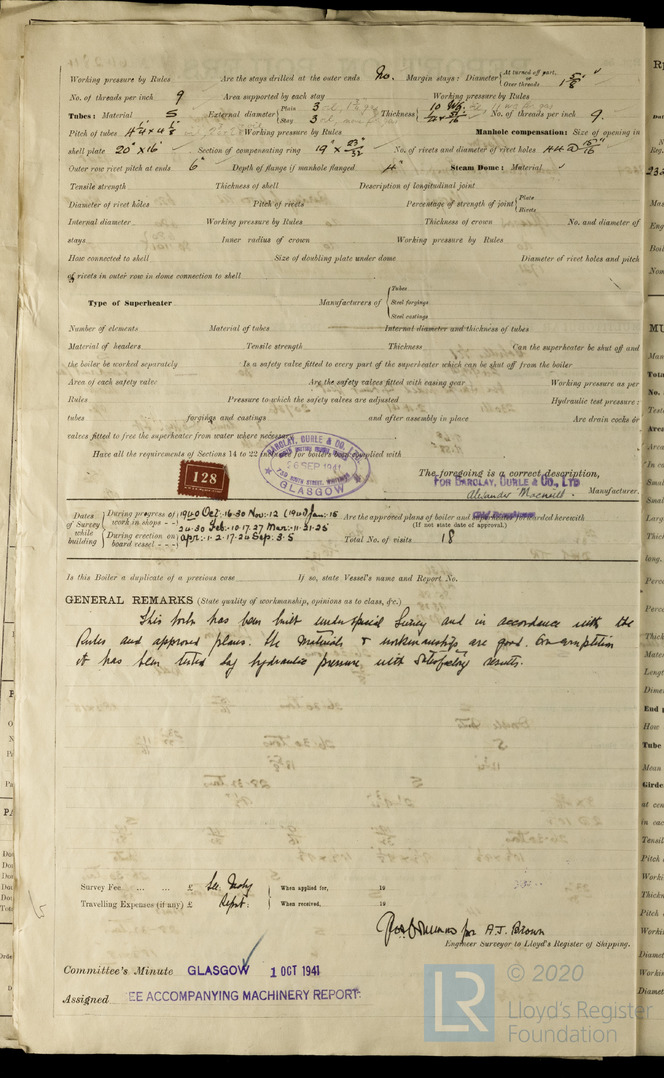 Working pressure by Rules Are the stays drilled at the outer ends No. Margin stays: Diameter { At turned off part, or Over threads 1 5/8"
No. of threads per inch 9 Area supported by each stay Working pressure by Rules
Tubes: Material S External diameter { Plate 3 Stay 3 Thickness { 10 WG. No. of threads per inch 9.
Pitch of tubes 4 1/4" x 4 1/8" Working pressure by Rules Manhole compensation: Size of opening in
shell plate 20" x 16" Section of compensating ring 19" x 23/32" No. of rivets and diameter of rivet holes 44 @ 15/16"
Outer row rivet pitch at ends 6" Depth of flange if manhole flanged 4" Steam Dome: Material
Tensile strength Thickness of shell Description of longitudinal joint
Diameter of rivet holes Pitch of rivets Percentage of strength of joint { Plate Rivets
Internal diameter Working pressure by Rules Thickness of crown No. and diameter of
stays Inner radius of crown Working pressure by Rules
How connected to shell Size of doubling plate under dome Diameter of rivet holes and pitch
of rivets in outer row in dome connection to shell
Type of Superheater Manufacturers of { Tubes Steel forgings Steel castings
Number of elements Material of tubes Internal diameter and thickness of tubes
Material of headers Tensile strength Thickness Can the superheater be shut off and
the boiler be worked separately Is a safety valve fitted to every part of the superheater which can be shut off from the boiler
Area of each safety valve Are the safety valves fitted with easing gear Working pressure as per
Rules Pressure to which the safety valves are adjusted Hydraulic test pressure:
tubes forgings and castings and after assembly in place Are drain cocks or
valves fitted to free the superheater from water where necessary
Have all the requirements of Sections 14 to 22 inclusive for boilers been complied with
BARCLAY, CURLE & CO., LTD
26 SEP. 1941
GLASGOW
128
The foregoing is a correct description,
FOR BARCLAY, CURLE & CO., LTD
Alexander Macneill. Manufacturer.
Dates of Survey while building { During progress of work in shops - - } 1940 Oct: 16. 30 Nov: 12 (1941) Jan: 15
24. 30 Feb: 10. 17. 27 Mar: 11. 21. 25
During erection on board vessel - - - } Apr: 1. 2. 17. 24 Sep: 3. 5
Are the approved plans of boiler and forwarded herewith
(If not state date of approval.)
Total No. of visits 18
Is this Boiler a duplicate of a previous case If so, state Vessel's name and Report No.
GENERAL REMARKS (State quality of workmanship, opinions as to class, &c.)
This boiler has been built under special Survey and in accordance with the
Rules and approved plans. The materials & workmanship are good. On completion
it has been tested by hydraulic pressure with satisfactory results.
Survey Fee ... ... £ See Mchy When applied for, 19
Travelling Expenses (if any) £ Report: When received, 19
for A.J. Brown
Engineer Surveyor to Lloyd's Register of Shipping.
Committee's Minute GLASGOW 1 OCT 1941
Assigned EE ACCOMPANYING MACHINERY REPORT.
LR
© 2020
Lloyd's Register
Foundation